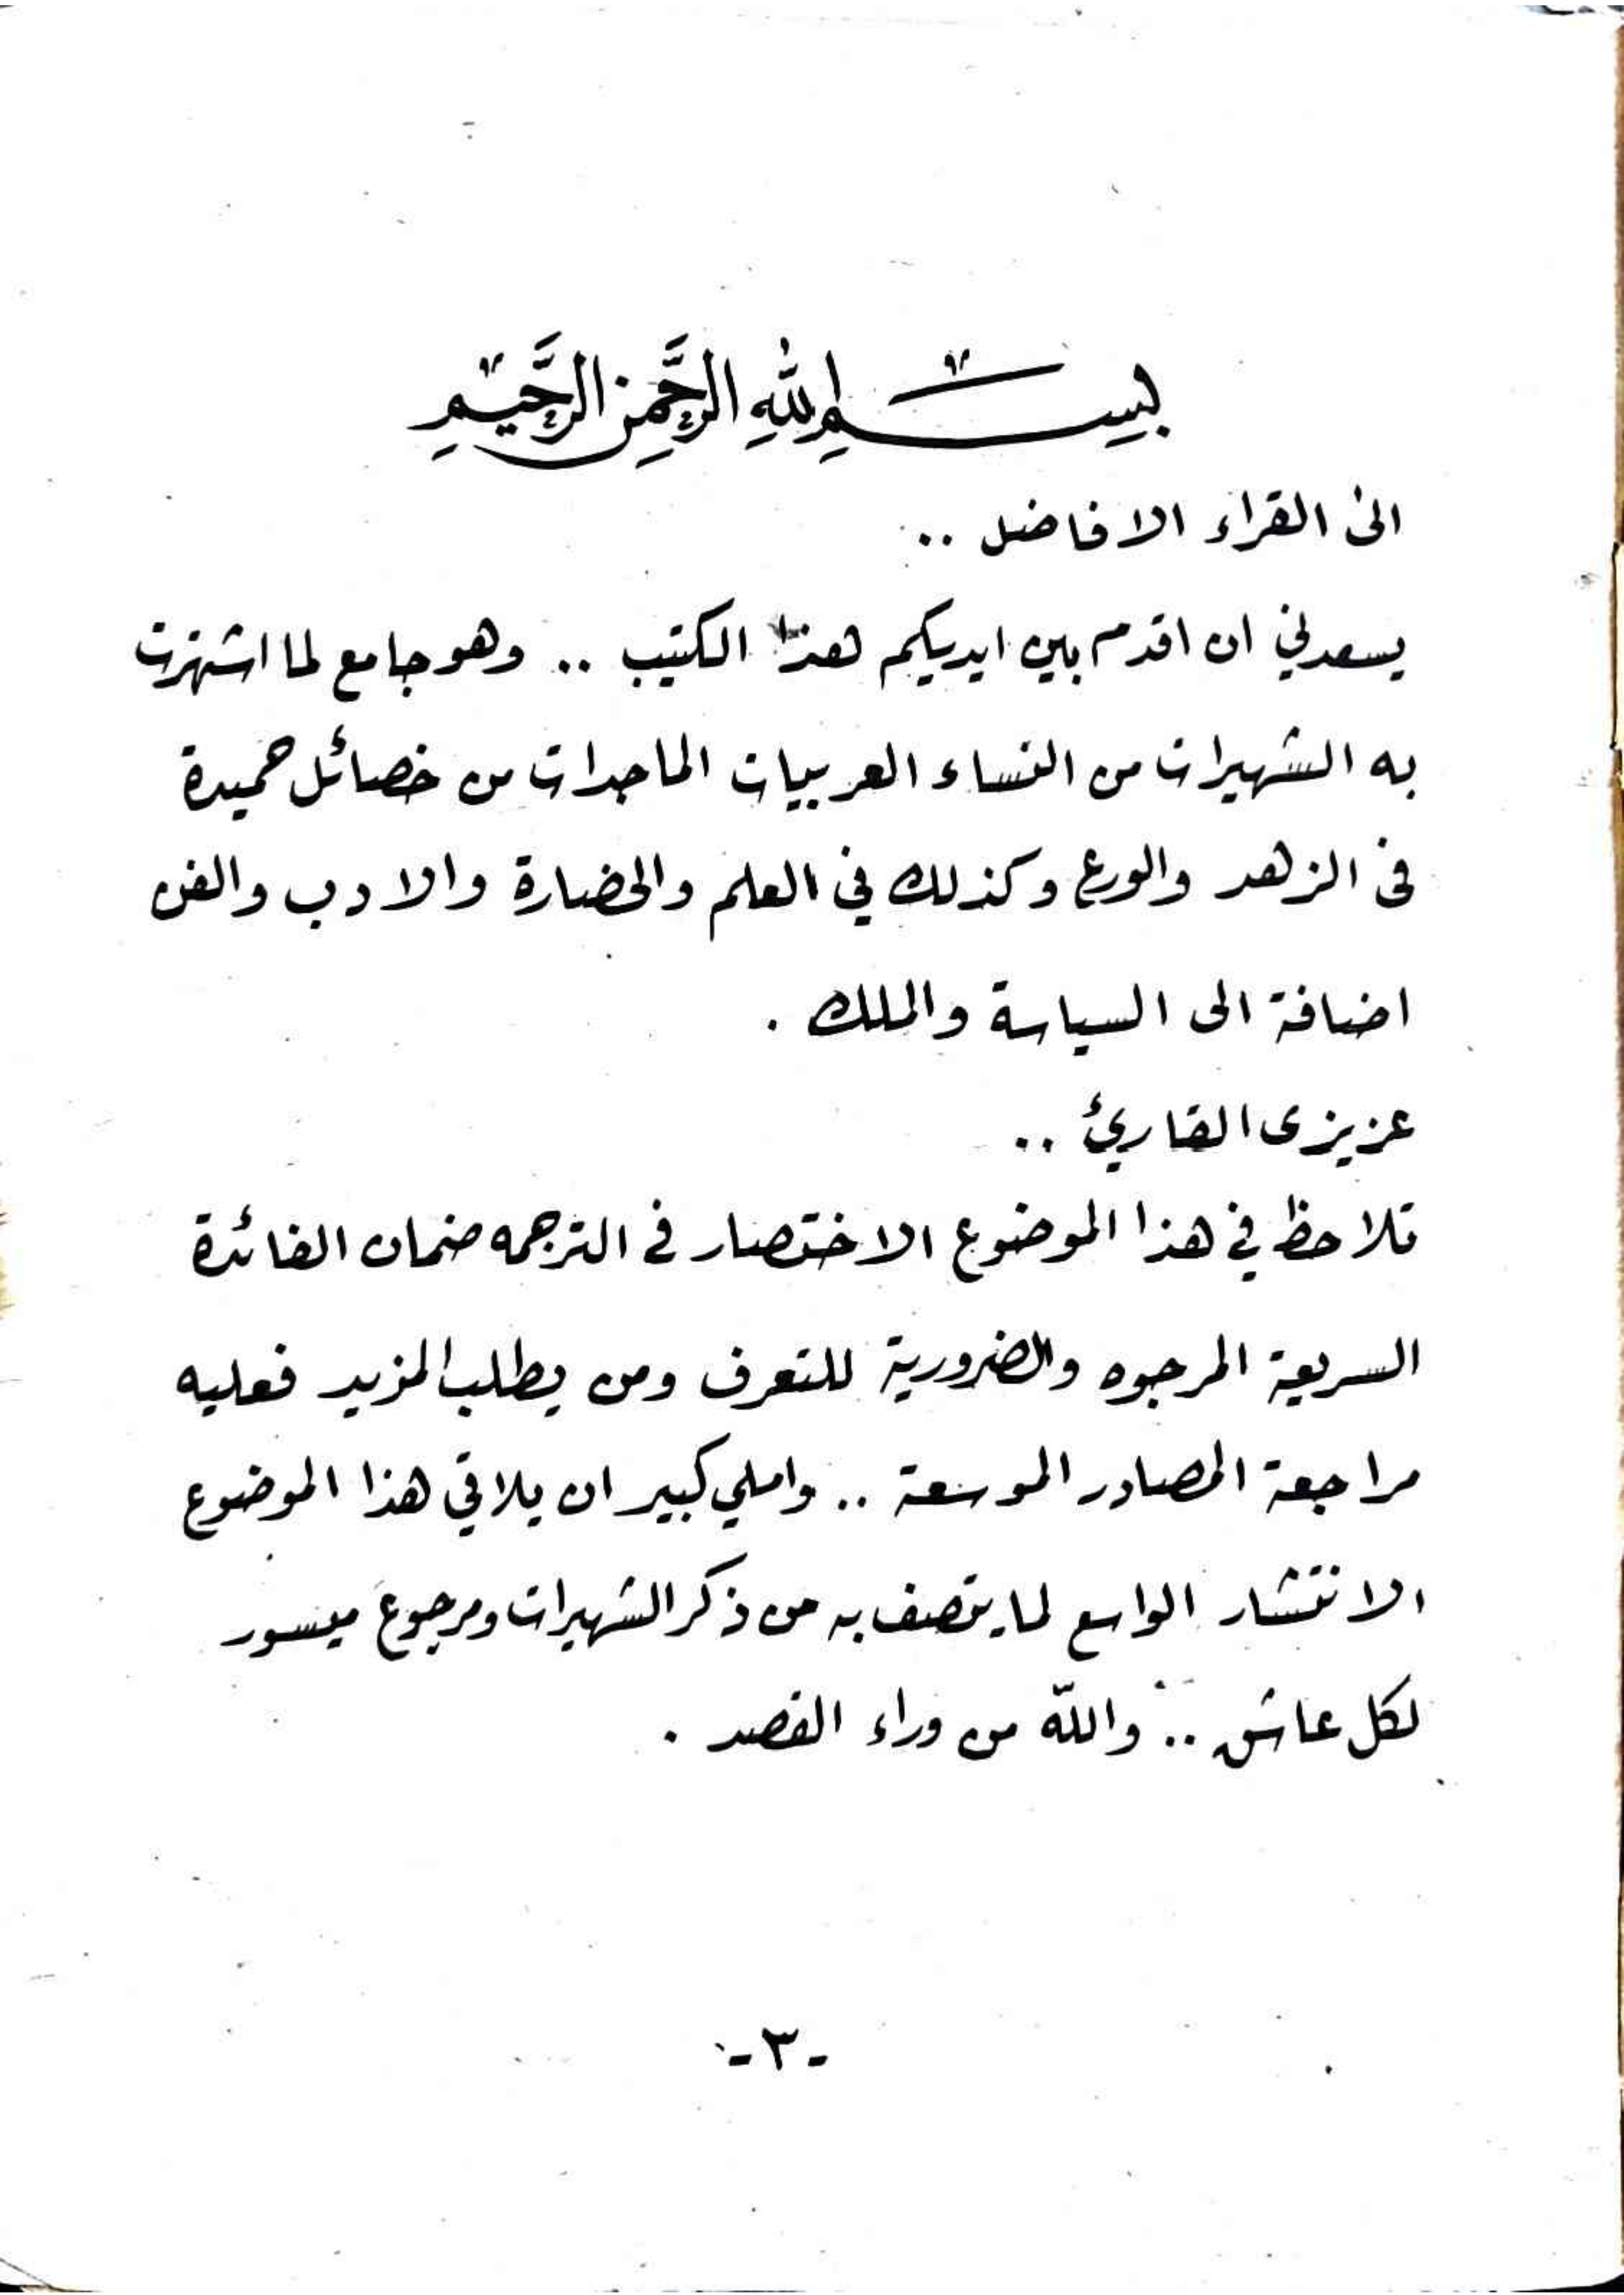 بِسْمِ اللهِ الرَّحْمٰنِ الرَّحِيْمِ
الى القراء الافاضل ..
يسعدني ان اقدم بين ايديكم هذا الكتيب .. وهو جامع لما اشتهرت
به الشهيرات من النساء العربيات الماجدات من خصائل حميدة
في الزهد والورع وكذلك في العلم والحضارة والادب والفن
اضافة الى السياسة والملك .
عزيزى القارئ ..
تلاحظ في هذا الموضوع الاختصار في الترجمه ضمان الفائدة
السريعة المرجوه والضرورية للتعرف ومن يطلب المزيد فعليه
مراجعة المصادر الموسعة .. واملي كبير ان يلاقي هذا الموضوع
الانتشار الواسع لما يتصف به من ذكر الشهيرات ومرجوع ميسور
لكل عاشق .. والله من وراء القصد .
-٣-